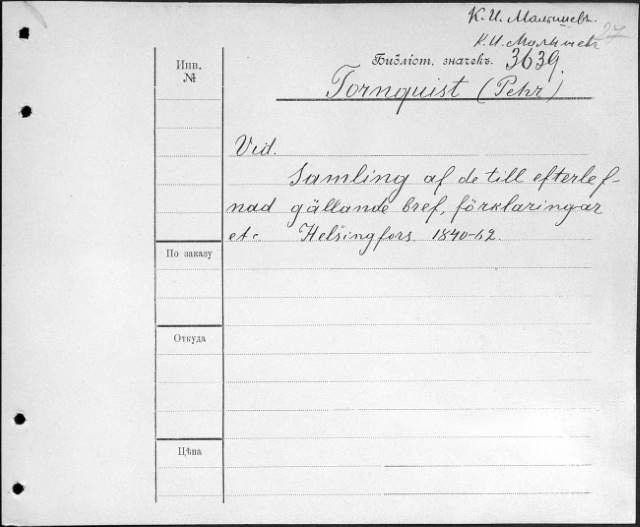 К. И. Малышевъ.
К. И. Малышев 27
Инв.
№
Библіот. значекъ. 3639.
Tornquist (Pehr)
Vid.
Samling af de till efterlef-
nad gällande bref, förklaringar
etc. Helsingfors. 1840-62.
По заказу
Откуда
Цѣна